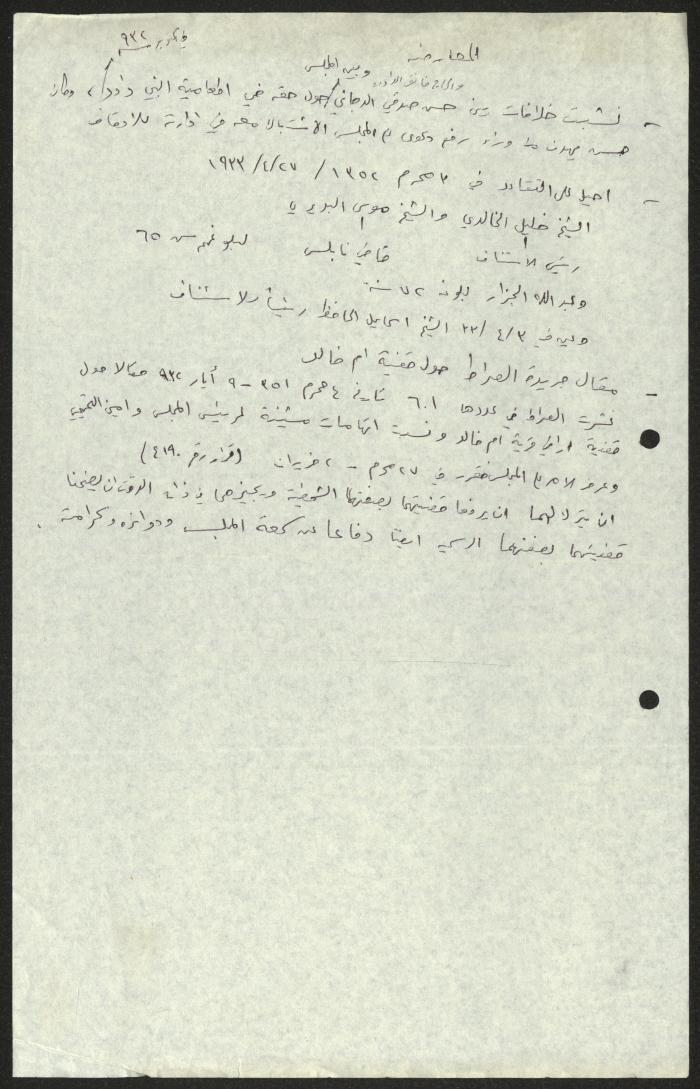 المعارضة
في اكتوبر سنة ٩٣٢
وبين المجلس
- نشبت خلافات بين حسن صدقي الدجاني حول حقه في اطعامية النبي داود، وكان
حسن يهدف من وراء رفع دعوى الى المجلس الاشتباك معه في ادارته للاوقاف
- احيل على التقاعد في ٣ محرم ١٣٥٢ / ٢٧/٤/١٩٣٣
الشيخ خليل الخالدي والشيخ موسى البديري
رئيس الاستئناف قاضي نابلس لبلوغهم سن ٦٥
وعبد الله الجزار لبلوغه ٧٢ سنة
وعين في ٣/٤/٣٣ الشيخ اسماعيل الحافظ رئيساً للاستئناف
- مقال جريدة الصراط حول قضية ام خالد
نشرت الصراط في عددها ٦٠١ تاريخ ٤ محرم ٣٥١ - ٩ أيار ٩٣٢ مقالا حول
قضية اراضي قرية ام خالد ونسبت اتهامات مشينة لرئيس المجلس وامين التميمي
وعرض الامر على المجلس فقرر في ٢٧ محرم - ٢ حزيران (قرار رقم ٤١٩٠)
ان يترك لهما ان يرفعا قضيتهما بصفتهما الشخصية ويجيزهما في ذات الوقت ان يضيفا
قضيتهما بصفتهما الرسمية ايضا دفاعا عن سمعة المجلس ودوائره وكرامته.